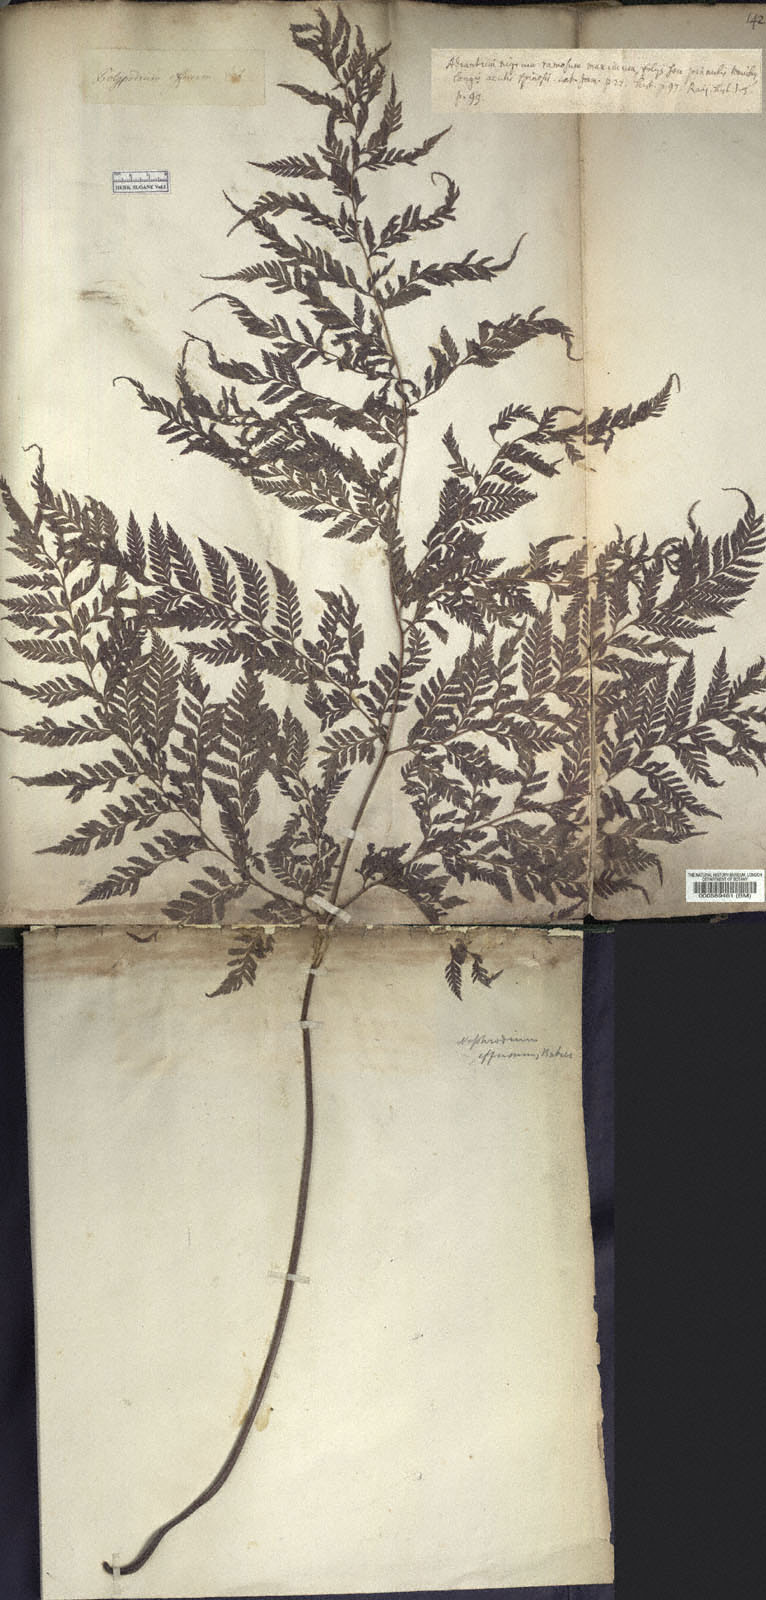 142
Polypodium effusum
Adiantum nigrum ramosum maximum, foliis seu pinnulis
longis acutis spinosis. Cat. Jam. p. 23. Hist. p. 97. Raij. Hist. 3.
p. 99.
HERB. SLOANE Vol.1
THE NATURAL HISTORY MUSEUM, LONDON
DEPARTMENT OF BOTANY
000589461 (BM)
Nephrodium
effusum, Baker